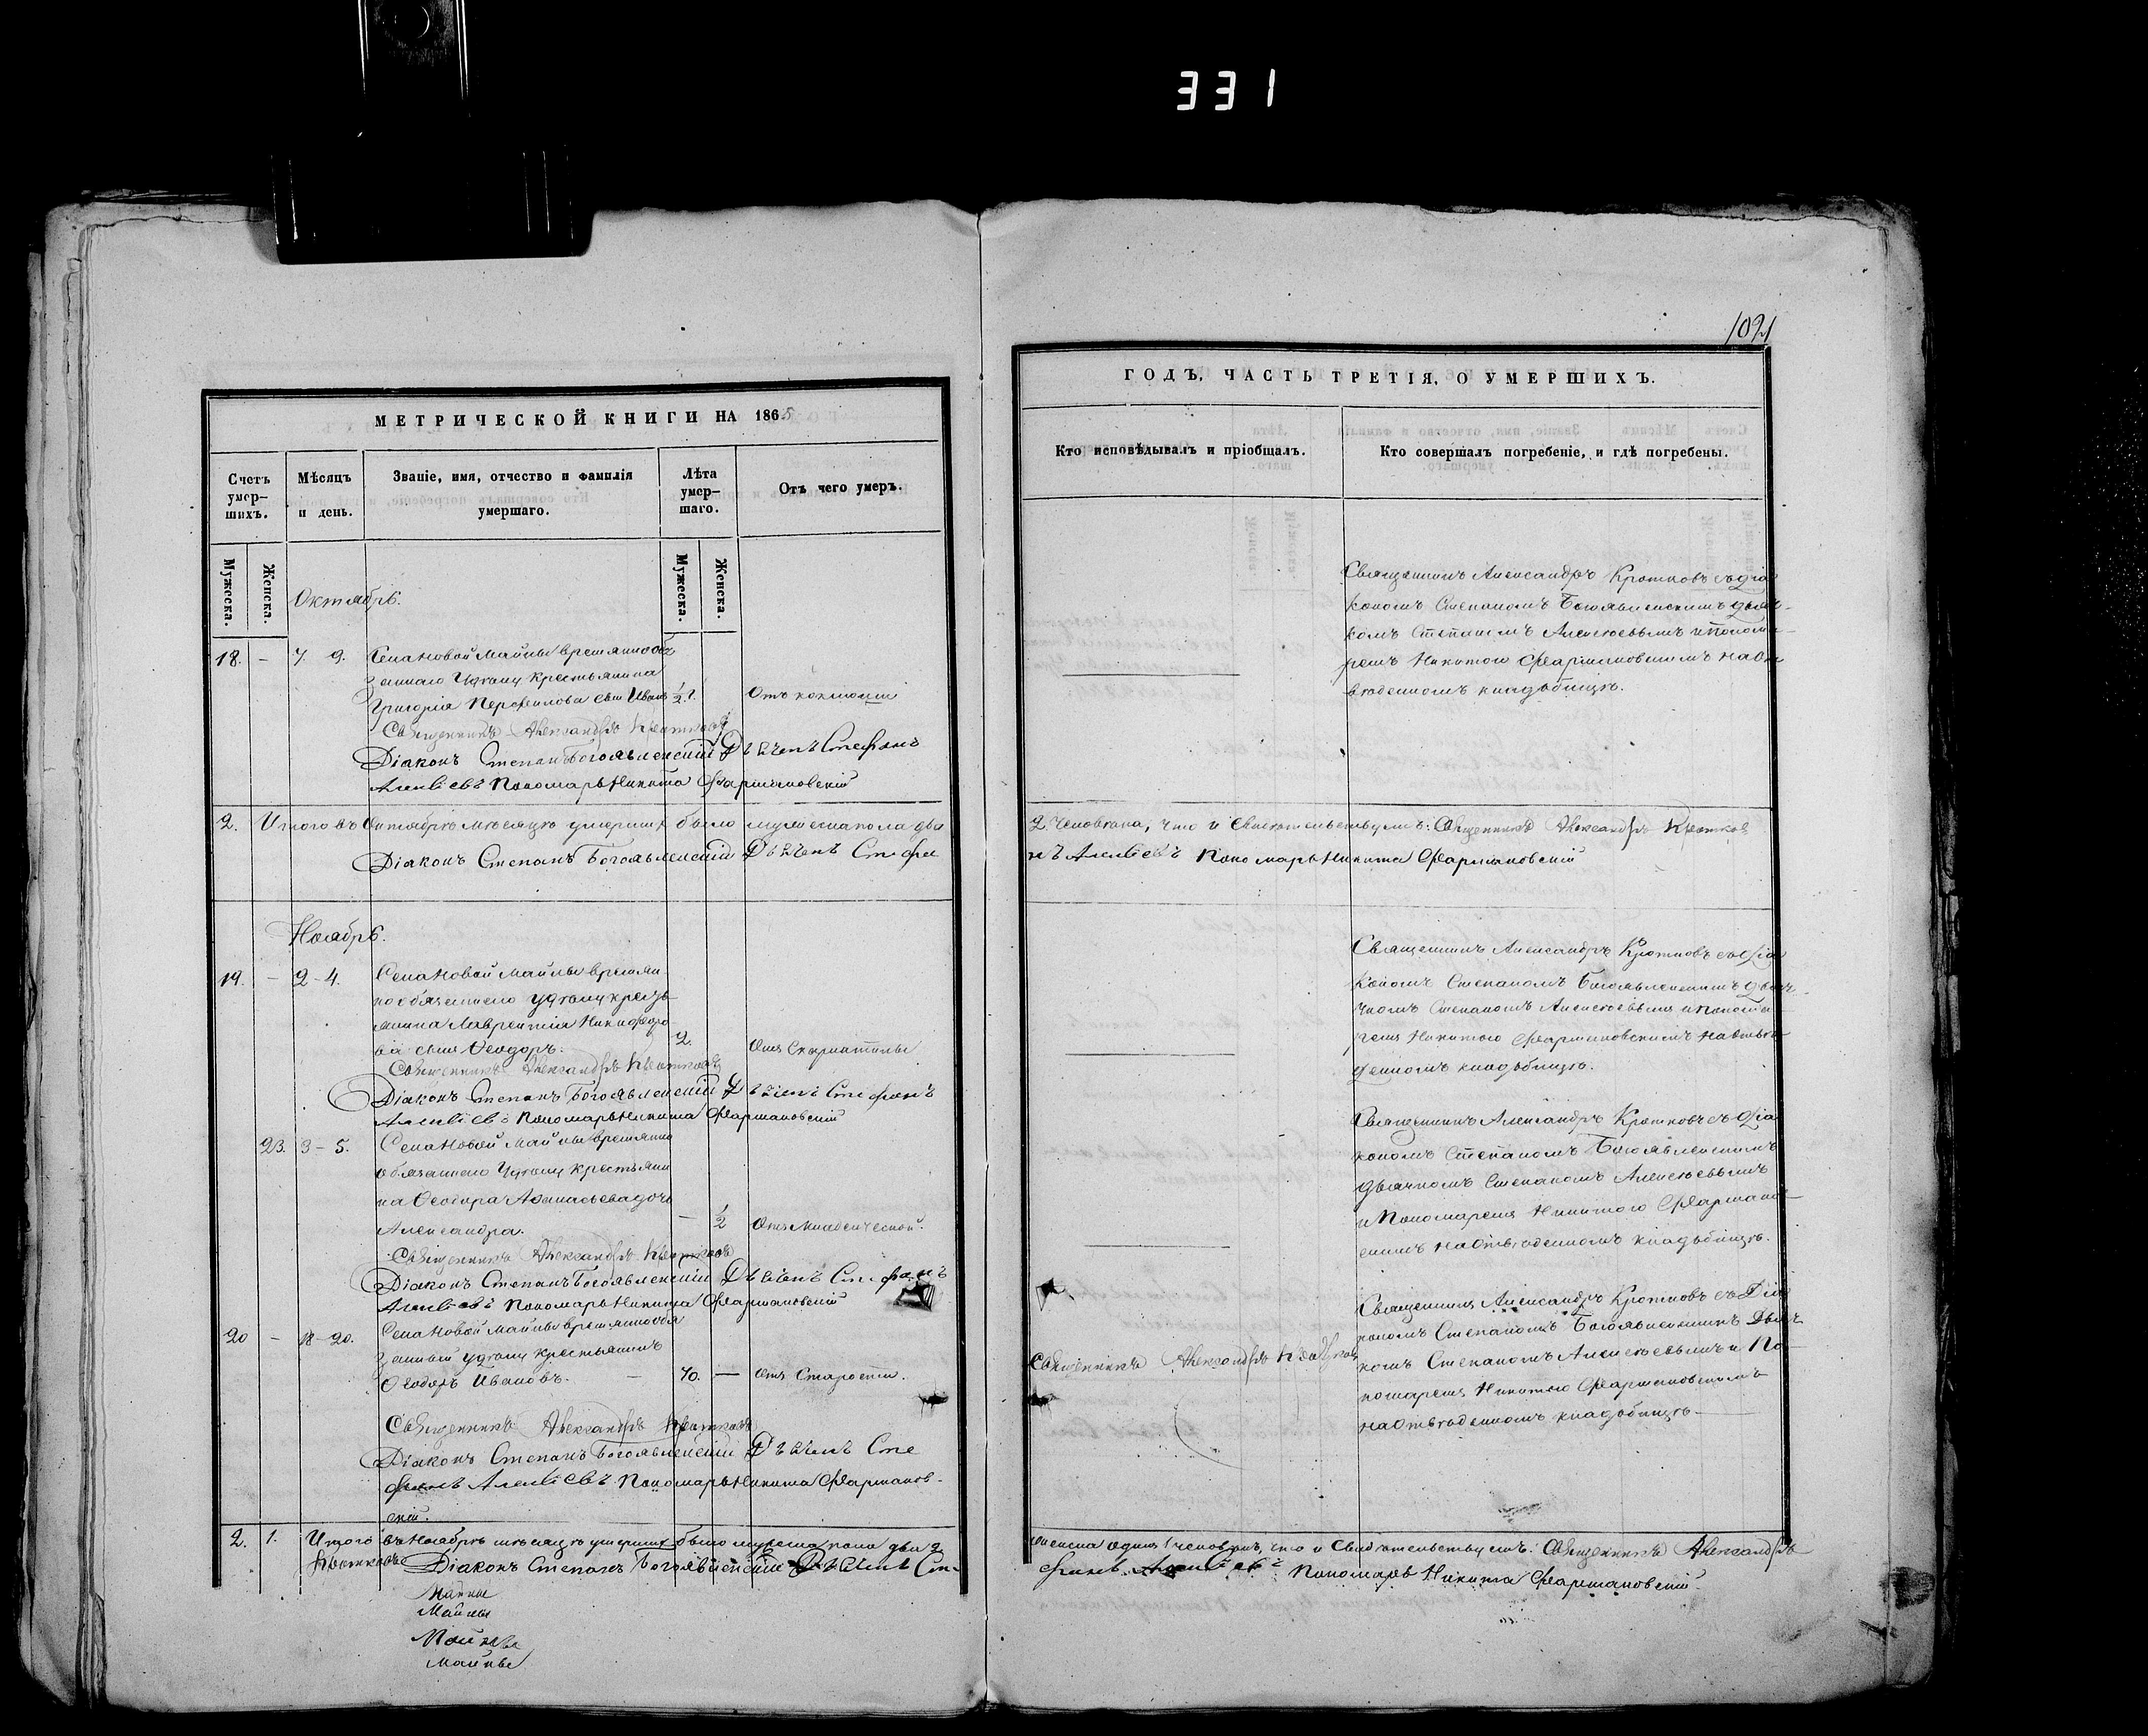 331
1021
МЕТРИЧЕСКОЙ КНИГИ НА 1865
Счетъ умер-
шихъ.
Мѣсяцъ
и день.
Званіе, имя, отчество и фамилія
умершаго.
Лѣта
умер-
шаго.
Отъ чего умеръ.
Мужеска.
Женска.
Мужеска.
Женска.
Октябрь.
18. - 7. 9. Села Новой Майны временнообя
заннаго Удѣлу крестьянина
Григорія Перфилова сынъ Иванъ ½ г. Отъ коклюши
Священникъ Александръ Кротковъ
Діаконъ Степанъ Богоявленскій Дьячекъ Стефанъ
Алексіевъ Пономарь Никита Фармаковскій
2. Итого въ Октябрѣ мѣсяцѣ умершихъ было мужеска пола два
Діаконъ Степанъ Богоявленскій Дьячекъ Стефа
Ноябрь.
19. - 2-4. Села Новой Майны времян
нообязаннаго Удѣлу кресть
янина Лаврентія Никифоро
ва сынъ Ѳеодоръ. 2.
Священникъ Александръ Кротковъ
Діаконъ Степанъ Богоявленскій Дьячекъ Стефанъ
Алексіевъ Пономарь Никита Фармаковскій
23. 3-5. Села Новой Майны времянно
обязаннаго Удѣлу крестьяни
на Ѳеодора Аѳанасьева дочь
Александра. - ½ Отъ Младенческой.
Священникъ Александръ Кротковъ
Діаконъ Степанъ Богоявленскій Дьячекъ Стефанъ
Алексіевъ Пономарь Никита Фармаковскій
20 - 18-20. Села Новой Майны временнообя
занный Удѣлу крестьянинъ
Ѳеодоръ Ивановъ. - 70. - Отъ Старости.
Священникъ Александръ Кротковъ
Діаконъ Степанъ Богоявленскій Дьячекъ Сте
фанъ Алексіевъ Пономарь Никита Фармаков-
скій.
2. 1. Итого въ Ноябрѣ мѣсяцѣ умершихъ было мужеска пола два 2
Кротковъ Діаконъ Степанъ Богоявленскій Дьячекъ Сте-
Майны
Майны
Майны
Майны
ГОДЪ, ЧАСТЬ ТРЕТІЯ, О УМЕРШИХЪ.
Кто исповѣдывалъ и пріобщалъ.
Кто совершалъ погребеніе, и гдѣ погребены.
Священникъ Александръ Кротковъ съ діа
кономъ Степаномъ Богоявленскимъ дьяч-
комъ Степаномъ Алексѣевымъ и Понома-
ремъ Никитою Фармаковскимъ на От
веденномъ кладбищѣ.
2 Человѣка, что и Свидѣтельствуемъ: Священникъ Александръ Кротковъ
нъ Алексіевъ Пономарь Никита Фармаковскій
Священникъ Александръ Кротковъ съ Діа
кономъ Степаномъ Богоявленскимъ дьяч-
комъ Степаномъ Алексѣевымъ и Понома
ремъ Никитою Фармаковскимъ на Отве
денномъ кладбищѣ.
Священникъ Александръ Кротковъ съ Діа
кономъ Степаномъ Богоявленскимъ
дьячкомъ Степаномъ Алексѣевымъ
и Пономаремъ Никитою Фармаков-
скимъ на Отведенномъ кладбищѣ.
Священникъ Александръ Кротковъ
Священникъ Александръ Кротковъ съ Діа
кономъ Степаномъ Богоявленскимъ Дьяч
комъ Степаномъ Алексѣевымъ и По-
номаремъ Никитою Фармаковскимъ
на Отведенномъ кладбищѣ
женска одинъ 1 человѣкъ, что и Свидѣтельствуемъ: Священникъ Александръ
фанъ Алексіевъ Пономарь Никита Фармаковскій